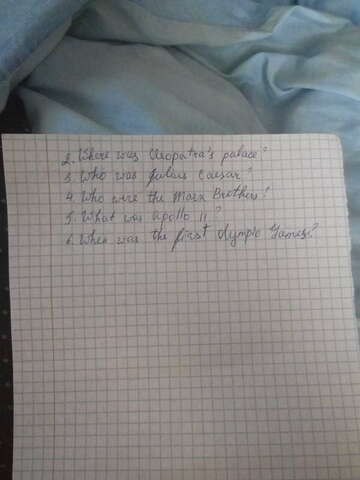 2. Where was Cleopatra's palace?
3. Who was Julius Caesar?
4. Who were the Marx Brothers?
5. What was Apollo 11?
6. When was the first Olympic Games?